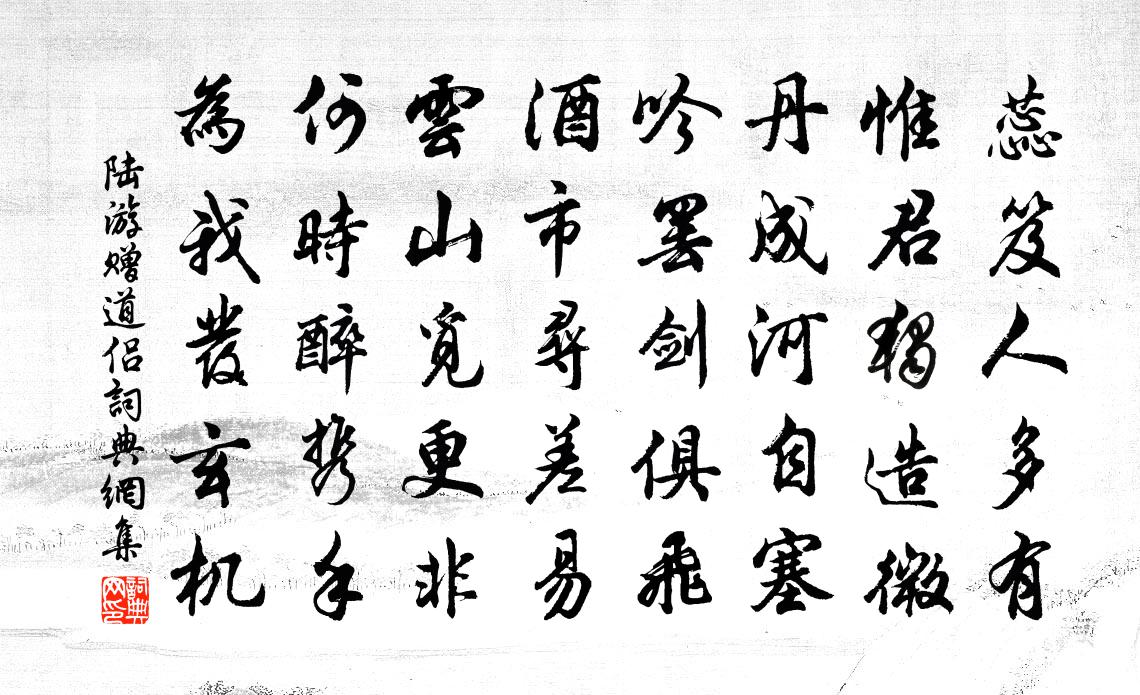 蕊笈人多有
惟君獨造微
丹成河自塞
吟罢劍俱飛
酒市尋差易
雲山覓更非
何時醉携手
為我發玄机
陆游赠道侣詞典網集
詞典网印